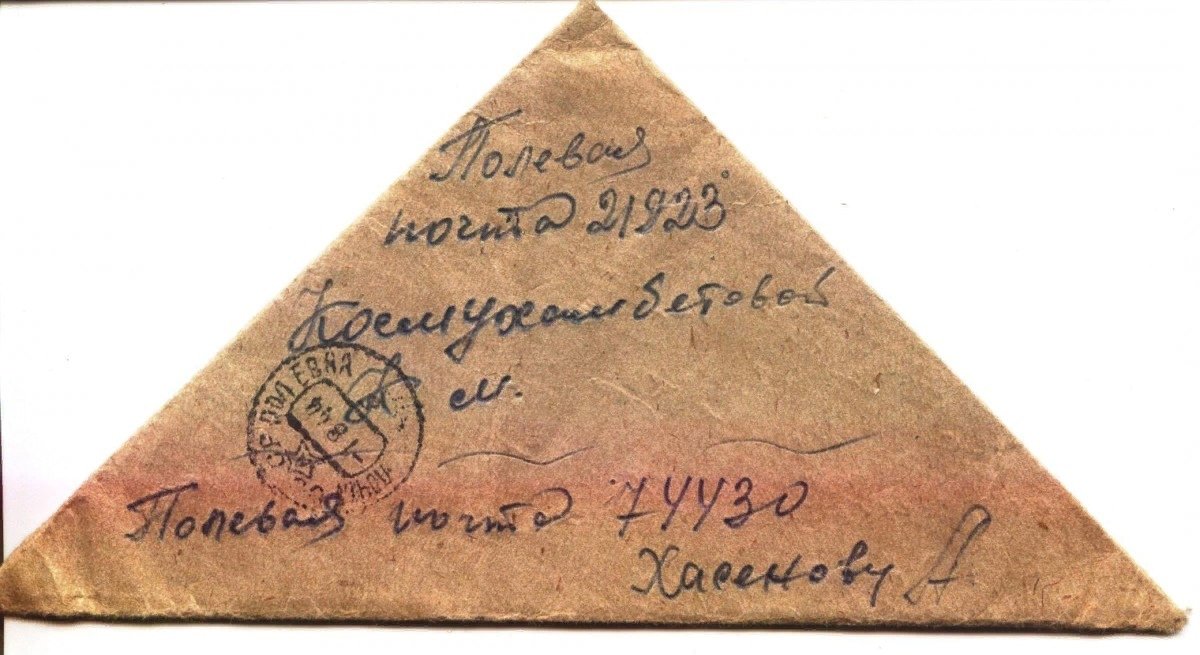 Полевая
почта 21923
Космухамбетовой
К м.
ПОЛЕВАЯ
Полевая почта 74430
Хасенову А.